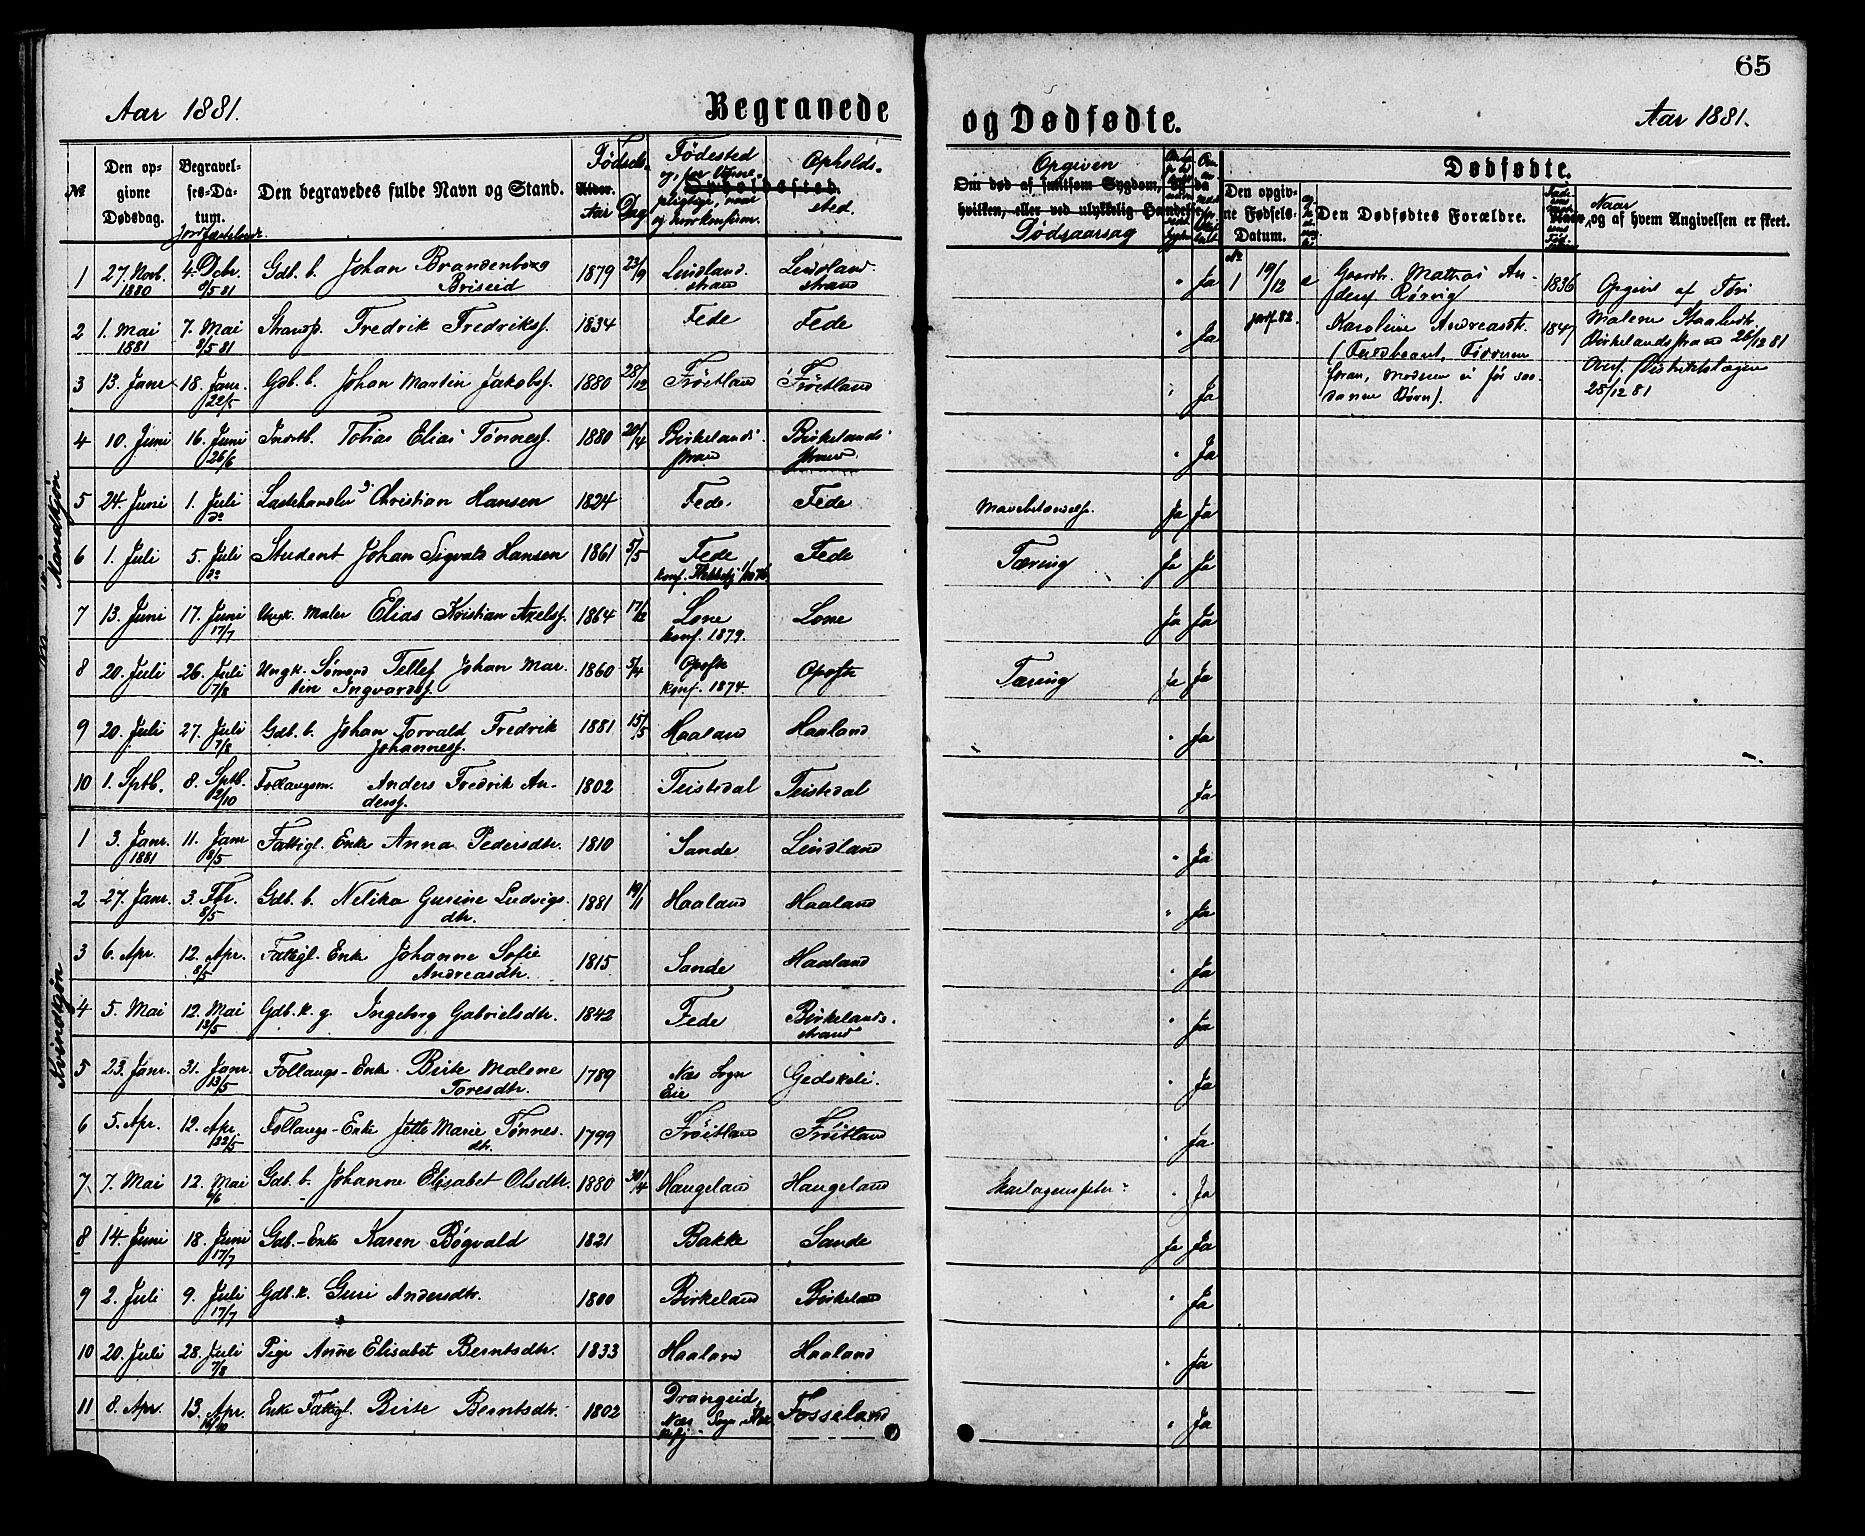 65
Aar 1881. Begravede og Dødfødte. Aar 1881.
№ Den opgivne Dødsdag. Begravelses-Datum. Den begravedes fulde Navn og Stand. Fødsels- Alder. Aar Dag Fødested Opholdssted. Opholdssted.
Opgiven Om død af smitsom Sygdom, da hvilken, eller ved ulykkelig Hændelse. Dødsaarsag
Dødfødte.
Den opgivne Fødsels-Datum. Den Dødfødtes Forældre. Naar og af hvem Angivelsen er skeet.
Mandkjøn
1 27. Novb. 1880 4. Dcbr. 8/5 81 Gdb. b. Johan Brandenborg Briseid 1879 23/9 Lindland strand Lindland strand " Ja
2 1. Mai 1881 7. Mai 8/5 81 Strands. Fredrik Fredriksf. 1834 Fede Fede " Ja
3 13. Janr 18. Janr. 22/5 Gdb. b. Johan Martin Jakobsf. 1880 28/12 Frøitland Frøitland " Ja
4 10. Juni 16. Juni 26/6 Indstb. Tobias Elias Tønnesf. 1880 20/4 Birkelands stran Birkelands strand " Ja
5 24. Juni 1. Juli do Landhandler Christian Hansen 1824 Fede Fede Ja Ja
6 1. Juli 5. Juli do Student Johan Sigvald Hansen 1861 5/5 Fede Fede Tæring Ja Ja
7 13. Juni 17. Juni 17/7 Ungk. Maler Elias Kristian Axelsf. 1864 17/12 Lone konf. 1879. Lone Ja Ja
8 20. Juli 26. Juli 7/8 Ungk. Sømand Tellef Johan Mar- tin Ingvardsf. 1860 5/4 Opofte konf. 1874 Opofte Tæring Ja Ja
9 20. Juli 27. Juli 7/8 Gdb. b. Johan Torvald Fredrik Johannesf. 1881 15/5 Haaland Haaland " Ja
10 1. Sptb. 8. Sptb. 2/10 Follaugsm. Anders Fredrik An- dersf. 1802 Teistedal Teistedal Ja
Kvindkjøn
1 3. Janr. 1881 11. Janr 8/5 Fattigl. Enke Anna Pedersdtr. 1810 Sande Lindland " Ja
2 27. Janr. 3. Fbr. 8/5 Gdb. b. Nelika Gurine Ludvigs- dtr. 1881 19/1 Haaland Haaland " Ja
3 6. Apr. 12. Apr. 8/5 Fattigl. Enke Johanne Sofie Andreasdtr. 1815 Sande Haaland " Ja
4 5. Mai 12. Mai 13/5 Gdb. k. g. Ingeborg Gabrielsdtr. 1842 Fede Birkelands- strand " Ja
5 23. Janr. 31. Janr. 13/5 Follaugs-Enke Birte Malene Toresdtr. 1789 Næs Sogn Eie Gedskeli. " Ja
6 5. Apr. 12. Apr. 22/5 Follaugs-Enke Jette Marie Tønnes- dtr. 1799 Frøitland Frøitland " Ja
7 7. Mai 12. Mai 6/6 Gdb. b. Johanne Elisabet Olsdtr. 1880 30/4 Haugeland Haugeland Skarlagensfeber " Ja
8 14. Juni 18. Juni 17/7 Gdb.-Enke Karen Bøgvald 1821 Bakke Sande Ja Ja
9 2. Juli 9. Juli 17/7 Gdb. k. Guri Andersdtr. 1800 Birkeland Birkeland " Ja
10 20. Juli 28. Juli 7/8 Pige Anne Elisabet Berntsdtr. 1833 Haaland Haaland " Ja
11 8. Apr. 13. Apr. Enke Fattigl. Birte Berntsdtr. 1802 Drangeid, Næs Sogn Fosseland " Ja
№ 1 19/12 Gaardb. Mathias An- dersf. Rørvig 1836 Opgivet af Tori
Karoline Andreasdtr. 1847 Malene Staalesdtr.
Birkelandsstrand 26/12 81
Overf. Distriktslægen
28/12 81